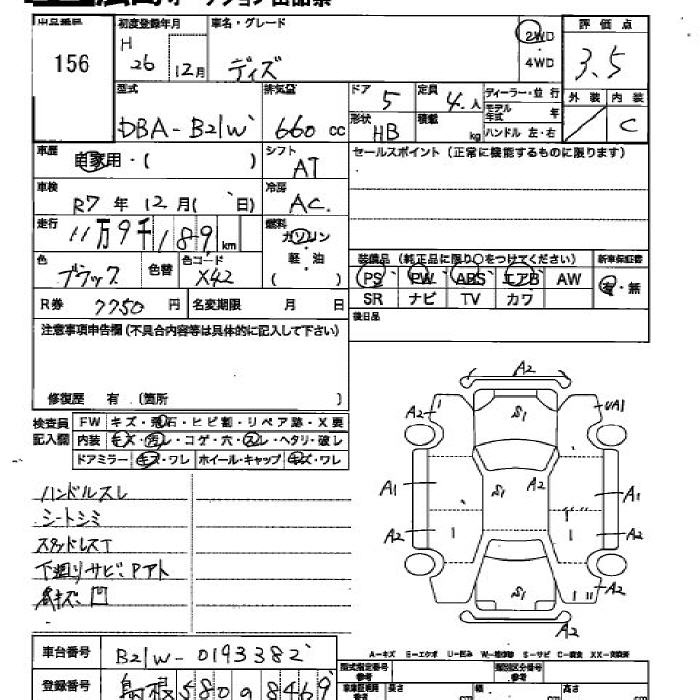 156
初度登録年月
H
26 12月
車名・グレード
ディズ
2WD
4WD
評価点
3.5
外装 内装
C
型式
DBA-B21W
排気量
660 cc
ドア
5
定員
4 人
形状
HB
積載
kg
ディーラー・並行
モデル年式 年
ハンドル 左・右
車歴
自家用・( )
シフト
AT
セールスポイント (正常に機能するものに限ります)
車検
R7 年 12 月 ( 日)
冷房
AC
走行
11万9千189 km
燃料
ガソリン
軽・油
( )
色
ブラック
色替
色コード
X42
装備品 (純正品に限り○をつけてください)
新車保証書
PS PW ABS エアB AW
有・無
SR ナビ TV カワ
R券 7750 円
名変期限 月 日
後日品
注意事項申告欄 (不具合内容等は具体的に記入して下さい)
修復歴 有 (箇所 )
検査員記入欄
FW キズ・飛石・ヒビ割・リペア跡・X要
内装 キズ・汚レ・コゲ・穴・スレ・ヘタリ・破レ
ドアミラー キズ・ワレ ホイール・キャップ キズ・ワレ
ハンドルスレ
シートシミ
スタッドレスT
下廻りサビ、Pアト
キズ、凹
A2
A2 S1 UA1
A1 S1 A2 A1
A2 A2
S1 A2
A2
A-キズ E-エクボ U-凹み W-補修跡 S-サビ C-腐食 XX-交換済
車台番号
B21W-0193382
登録番号
島根580 8469
型式指定番号
参考
類別区分番号
参考
長さ cm 幅 cm 高さ cm